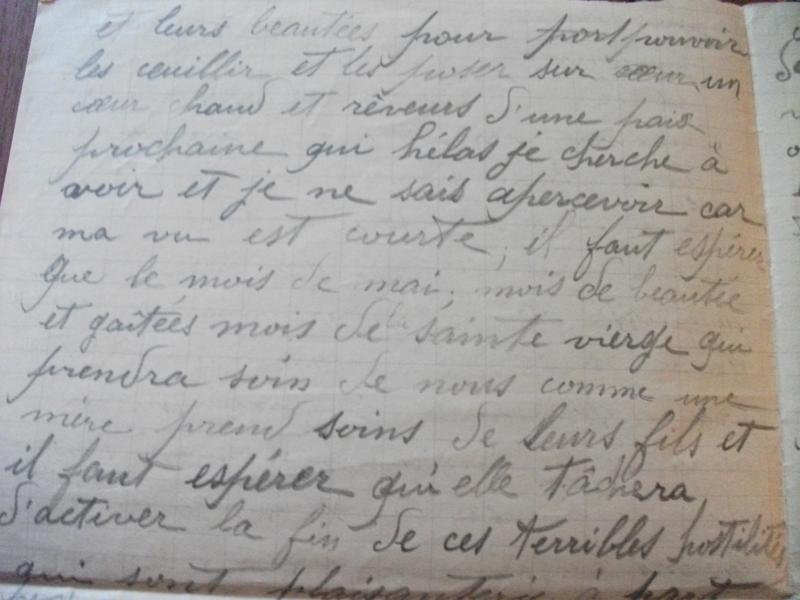 et leurs beautées pour port pouvoir
les ceuillir et les poser sur cœur un
cœur chaud et rêveurs d'une paix
prochaine qui hélas je cherche à
avoir et je ne sais apercevoir car
ma vu est courte, il faut espérer
que le mois de mai, mois de beautée
et gaîtées mois de la sainte vierge qui
prendra soin de nous comme une
mère prend soins de leurs fils et
il faut espérer qu'elle tâchera
d'activer la fin de ces terribles hostilités
qui sont plaisanterie à part